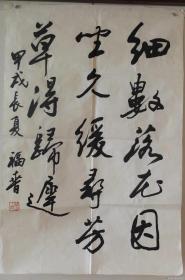 细数落花因
坐久缓寻芳
草得归迟
甲戌长夏 福晋